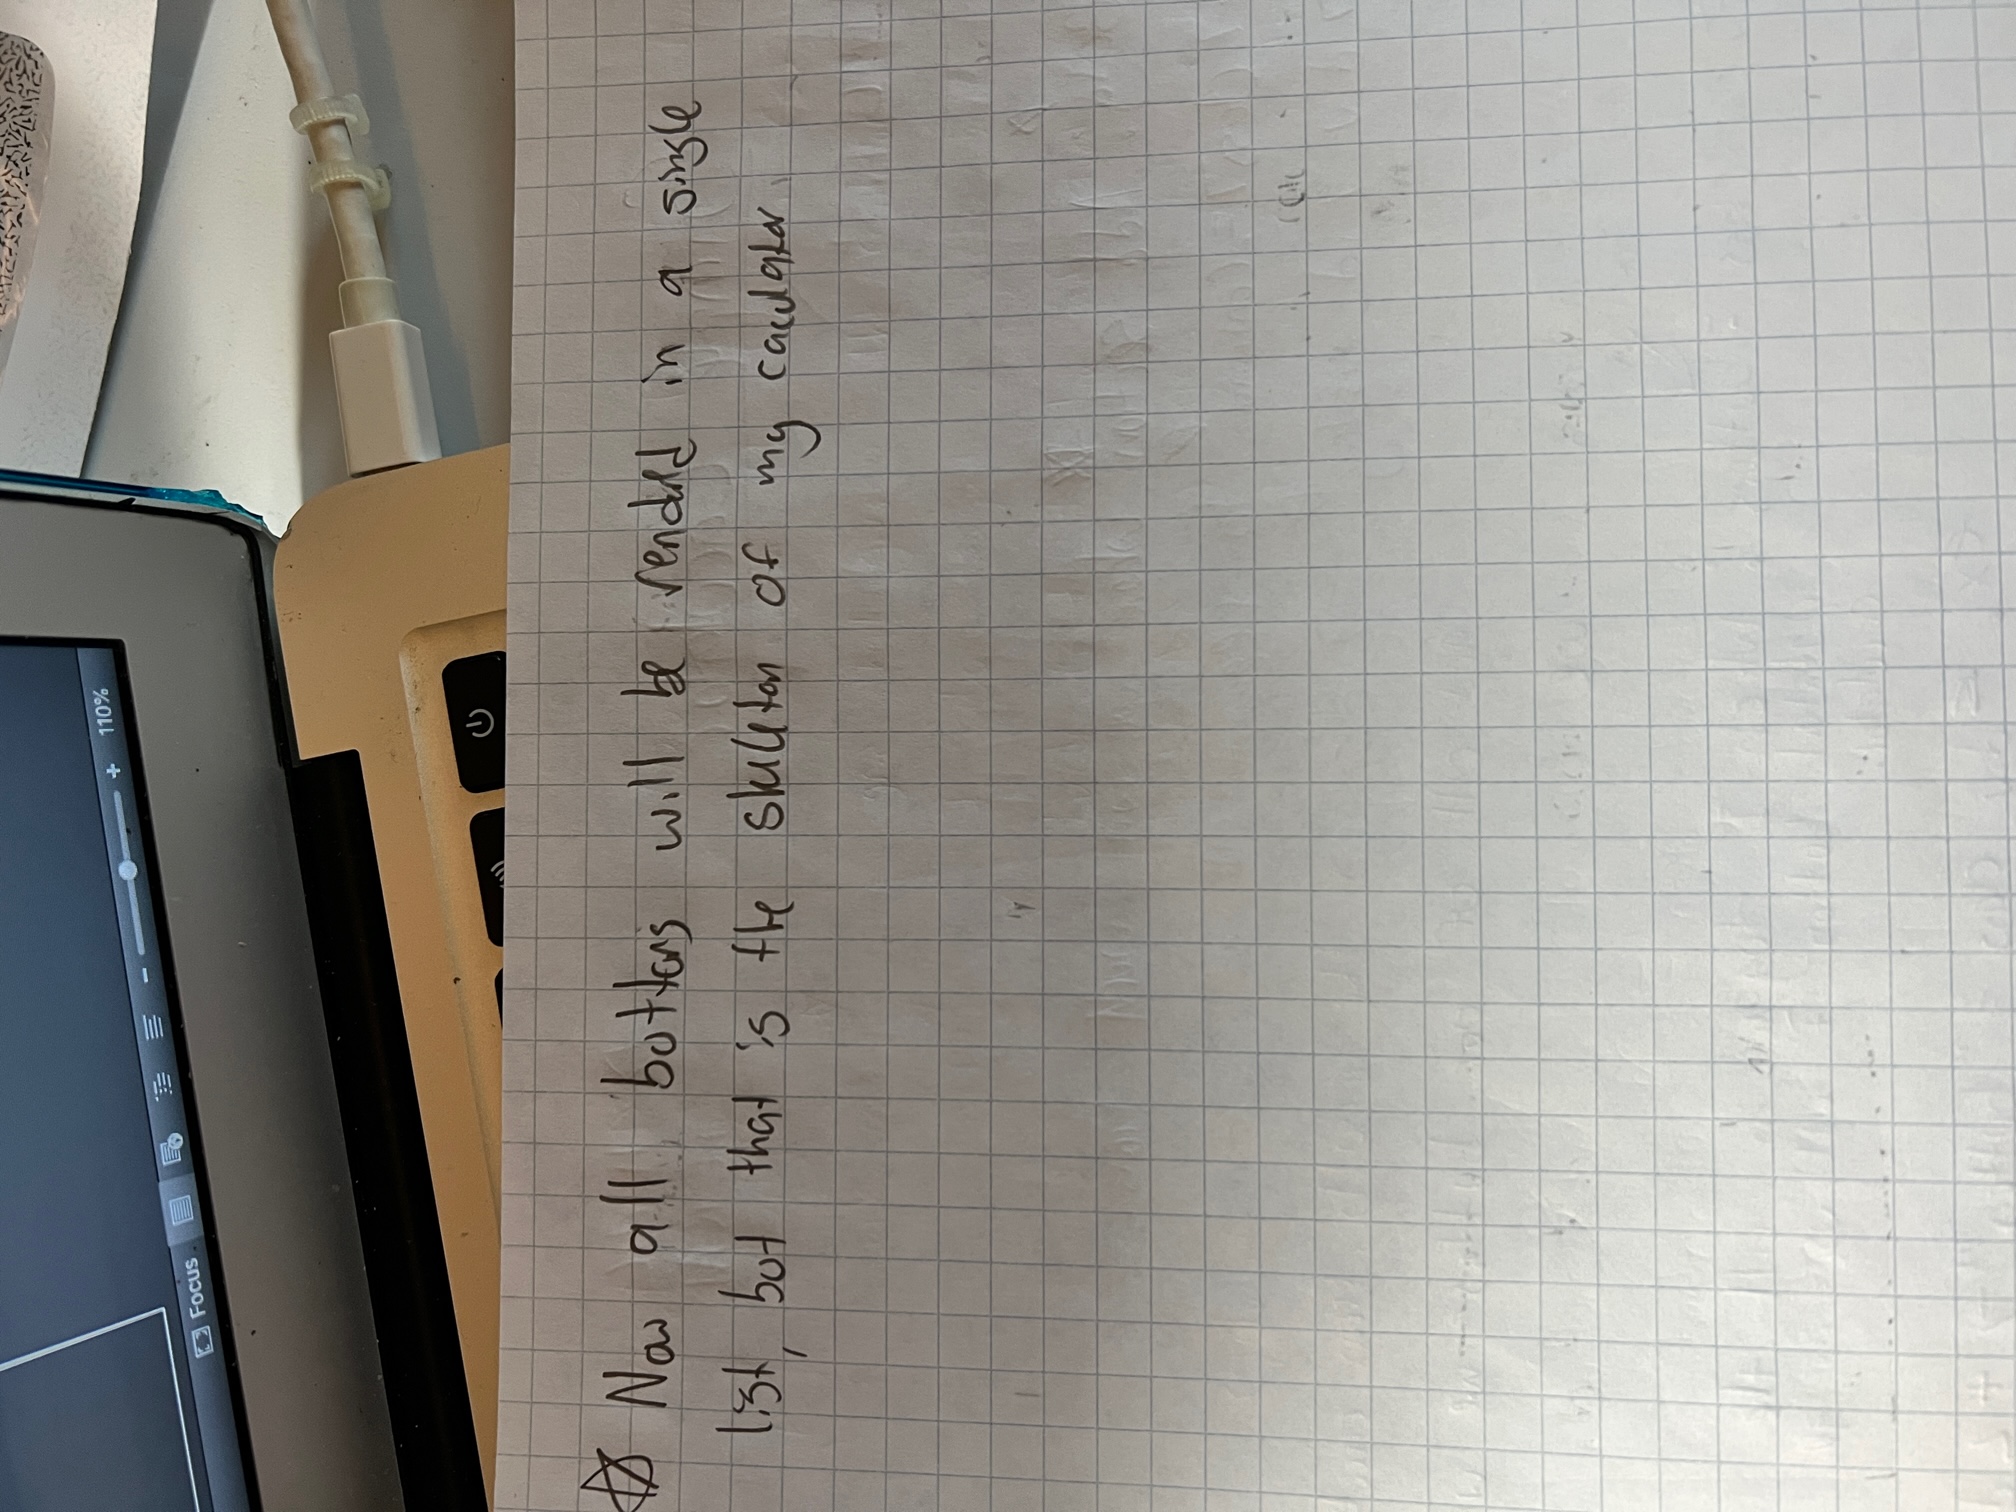 110%
Focus
☆ Now all buttons will be rendered in a single
list, but that is the skeleton of my caculator